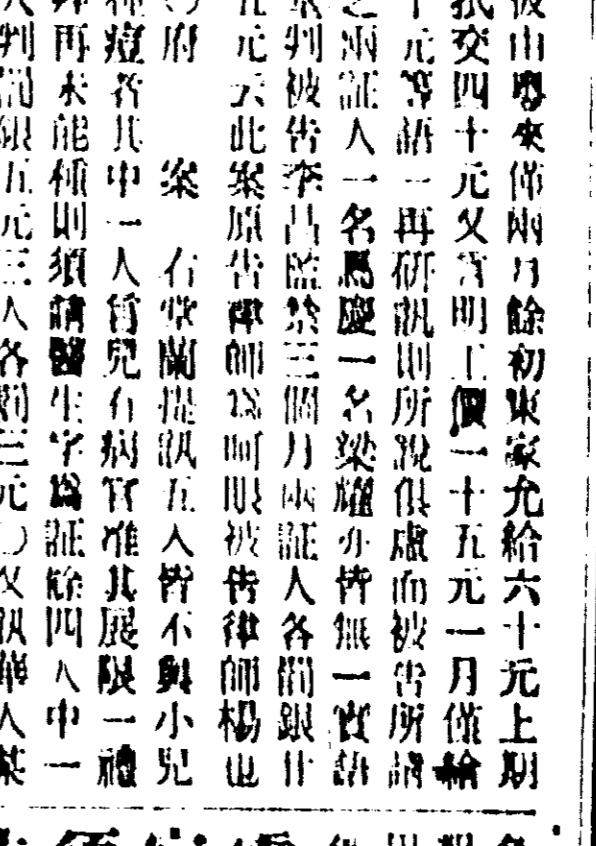 被由粵來僅兩月餘初東家允給六十元上期
祇交四十元又言明工價一十五元一月僅給
十元等語一再研訊則所說俱虛而被告所請
之兩証人一名馬慶一名梁耀亦皆無一實語
判被告李昌監禁三個月兩証人各罰銀廿
五元云此案原告律師為呵則被告律師楊也
府 案 右堂蘭提訊五人皆不與小兒
種痘者其中一人嘗兒有病官准其展限一禮
再未能種則須請醫生字為証餘四人中一
人判罰銀五元三人各罰三元〇又訊華人某